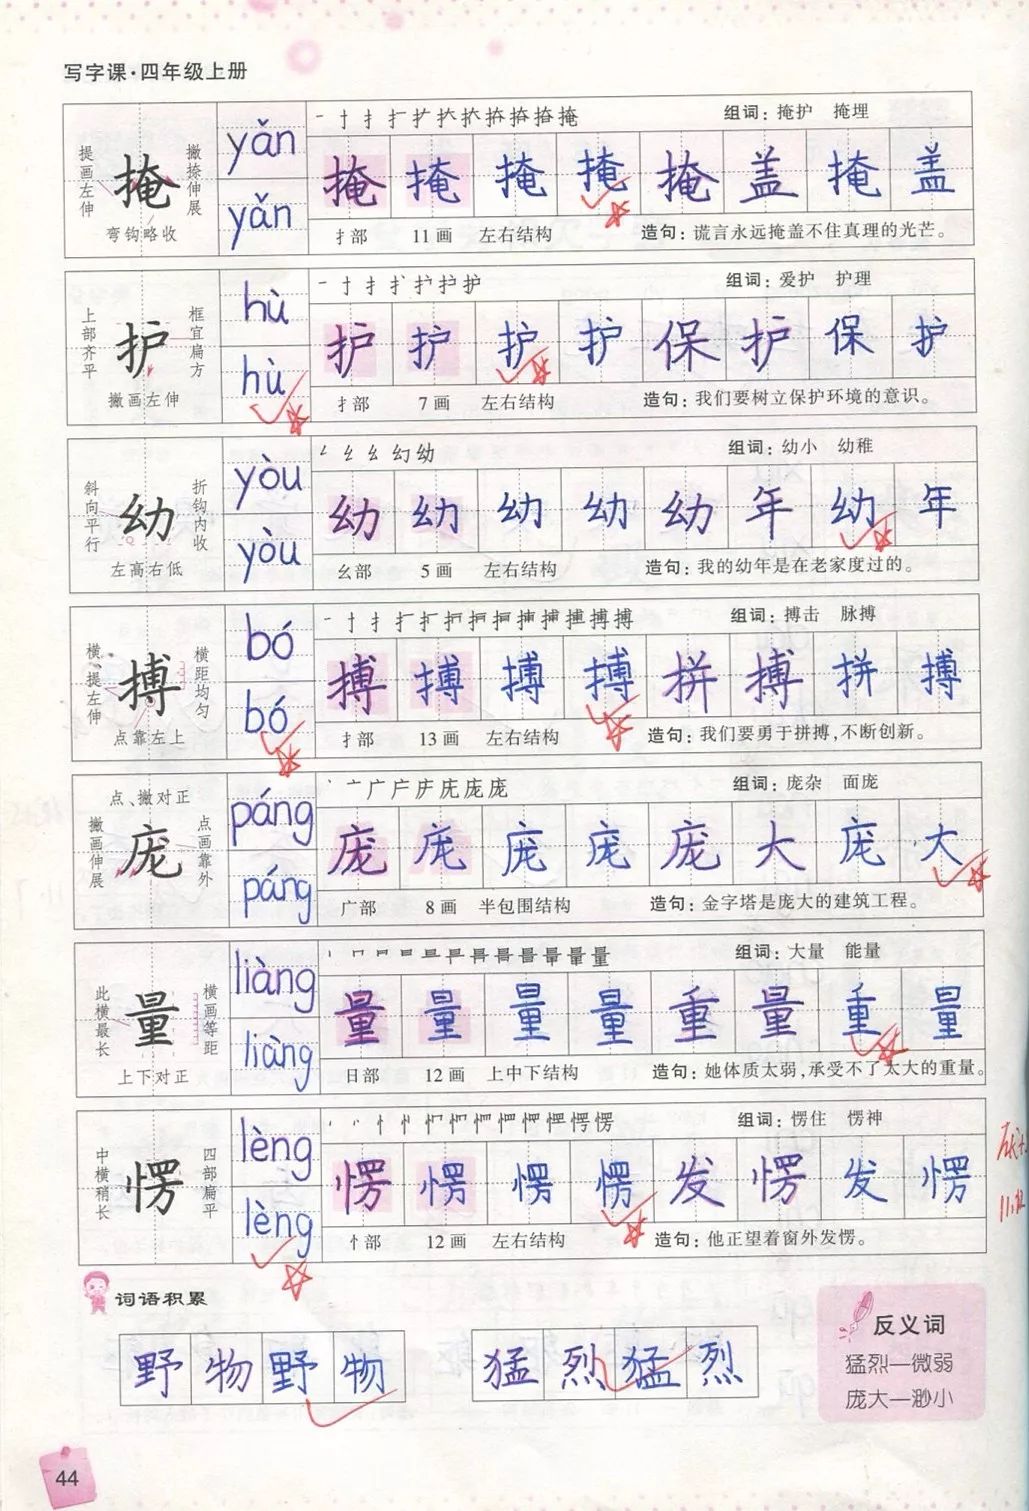 写字课·四年级上册
提画左伸
掩
撇捺伸展
弯钩略收
yǎn
yǎn
组词：掩护 掩埋
掩 掩 掩 掩 掩 盖 掩 盖
扌部 11画 左右结构 造句：谎言永远掩盖不住真理的光芒。
上部齐平
护
框宜扁方
撇画左伸
hù
hù
组词：爱护 护理
护 护 护 护 保 护 保 护
扌部 7画 左右结构 造句：我们要树立保护环境的意识。
斜向平行
幼
折钩内收
左高右低
yòu
yòu
组词：幼小 幼稚
幼 幼 幼 幼 幼 年 幼 年
幺部 5画 左右结构 造句：我的幼年是在老家度过的。
横、提左伸
搏
横距均匀
点靠左上
bó
bó
组词：搏击 脉搏
搏 搏 搏 搏 拼 搏 拼 搏
扌部 13画 左右结构 造句：我们要勇于拼搏，不断创新。
点、撇对正
撇画伸展
庞
点画靠外
páng
páng
组词：庞杂 面庞
庞 庞 庞 庞 庞 大 庞 大
广部 8画 半包围结构 造句：金字塔是庞大的建筑工程。
此横最长
量
横画等距
上下对正
liàng
liàng
组词：大量 能量
量 量 量 量 重 量 重 量
日部 12画 上中下结构 造句：她体质太弱，承受不了太大的重量。
中横稍长
愣
四部扁平
lèng
lèng
组词：愣住 愣神
愣 愣 愣 愣 发 愣 发 愣
忄部 12画 左右结构 造句：他正望着窗外发愣。
词语积累
野 物 野 物 猛 烈 猛 烈
反义词
猛烈—微弱
庞大—渺小
44